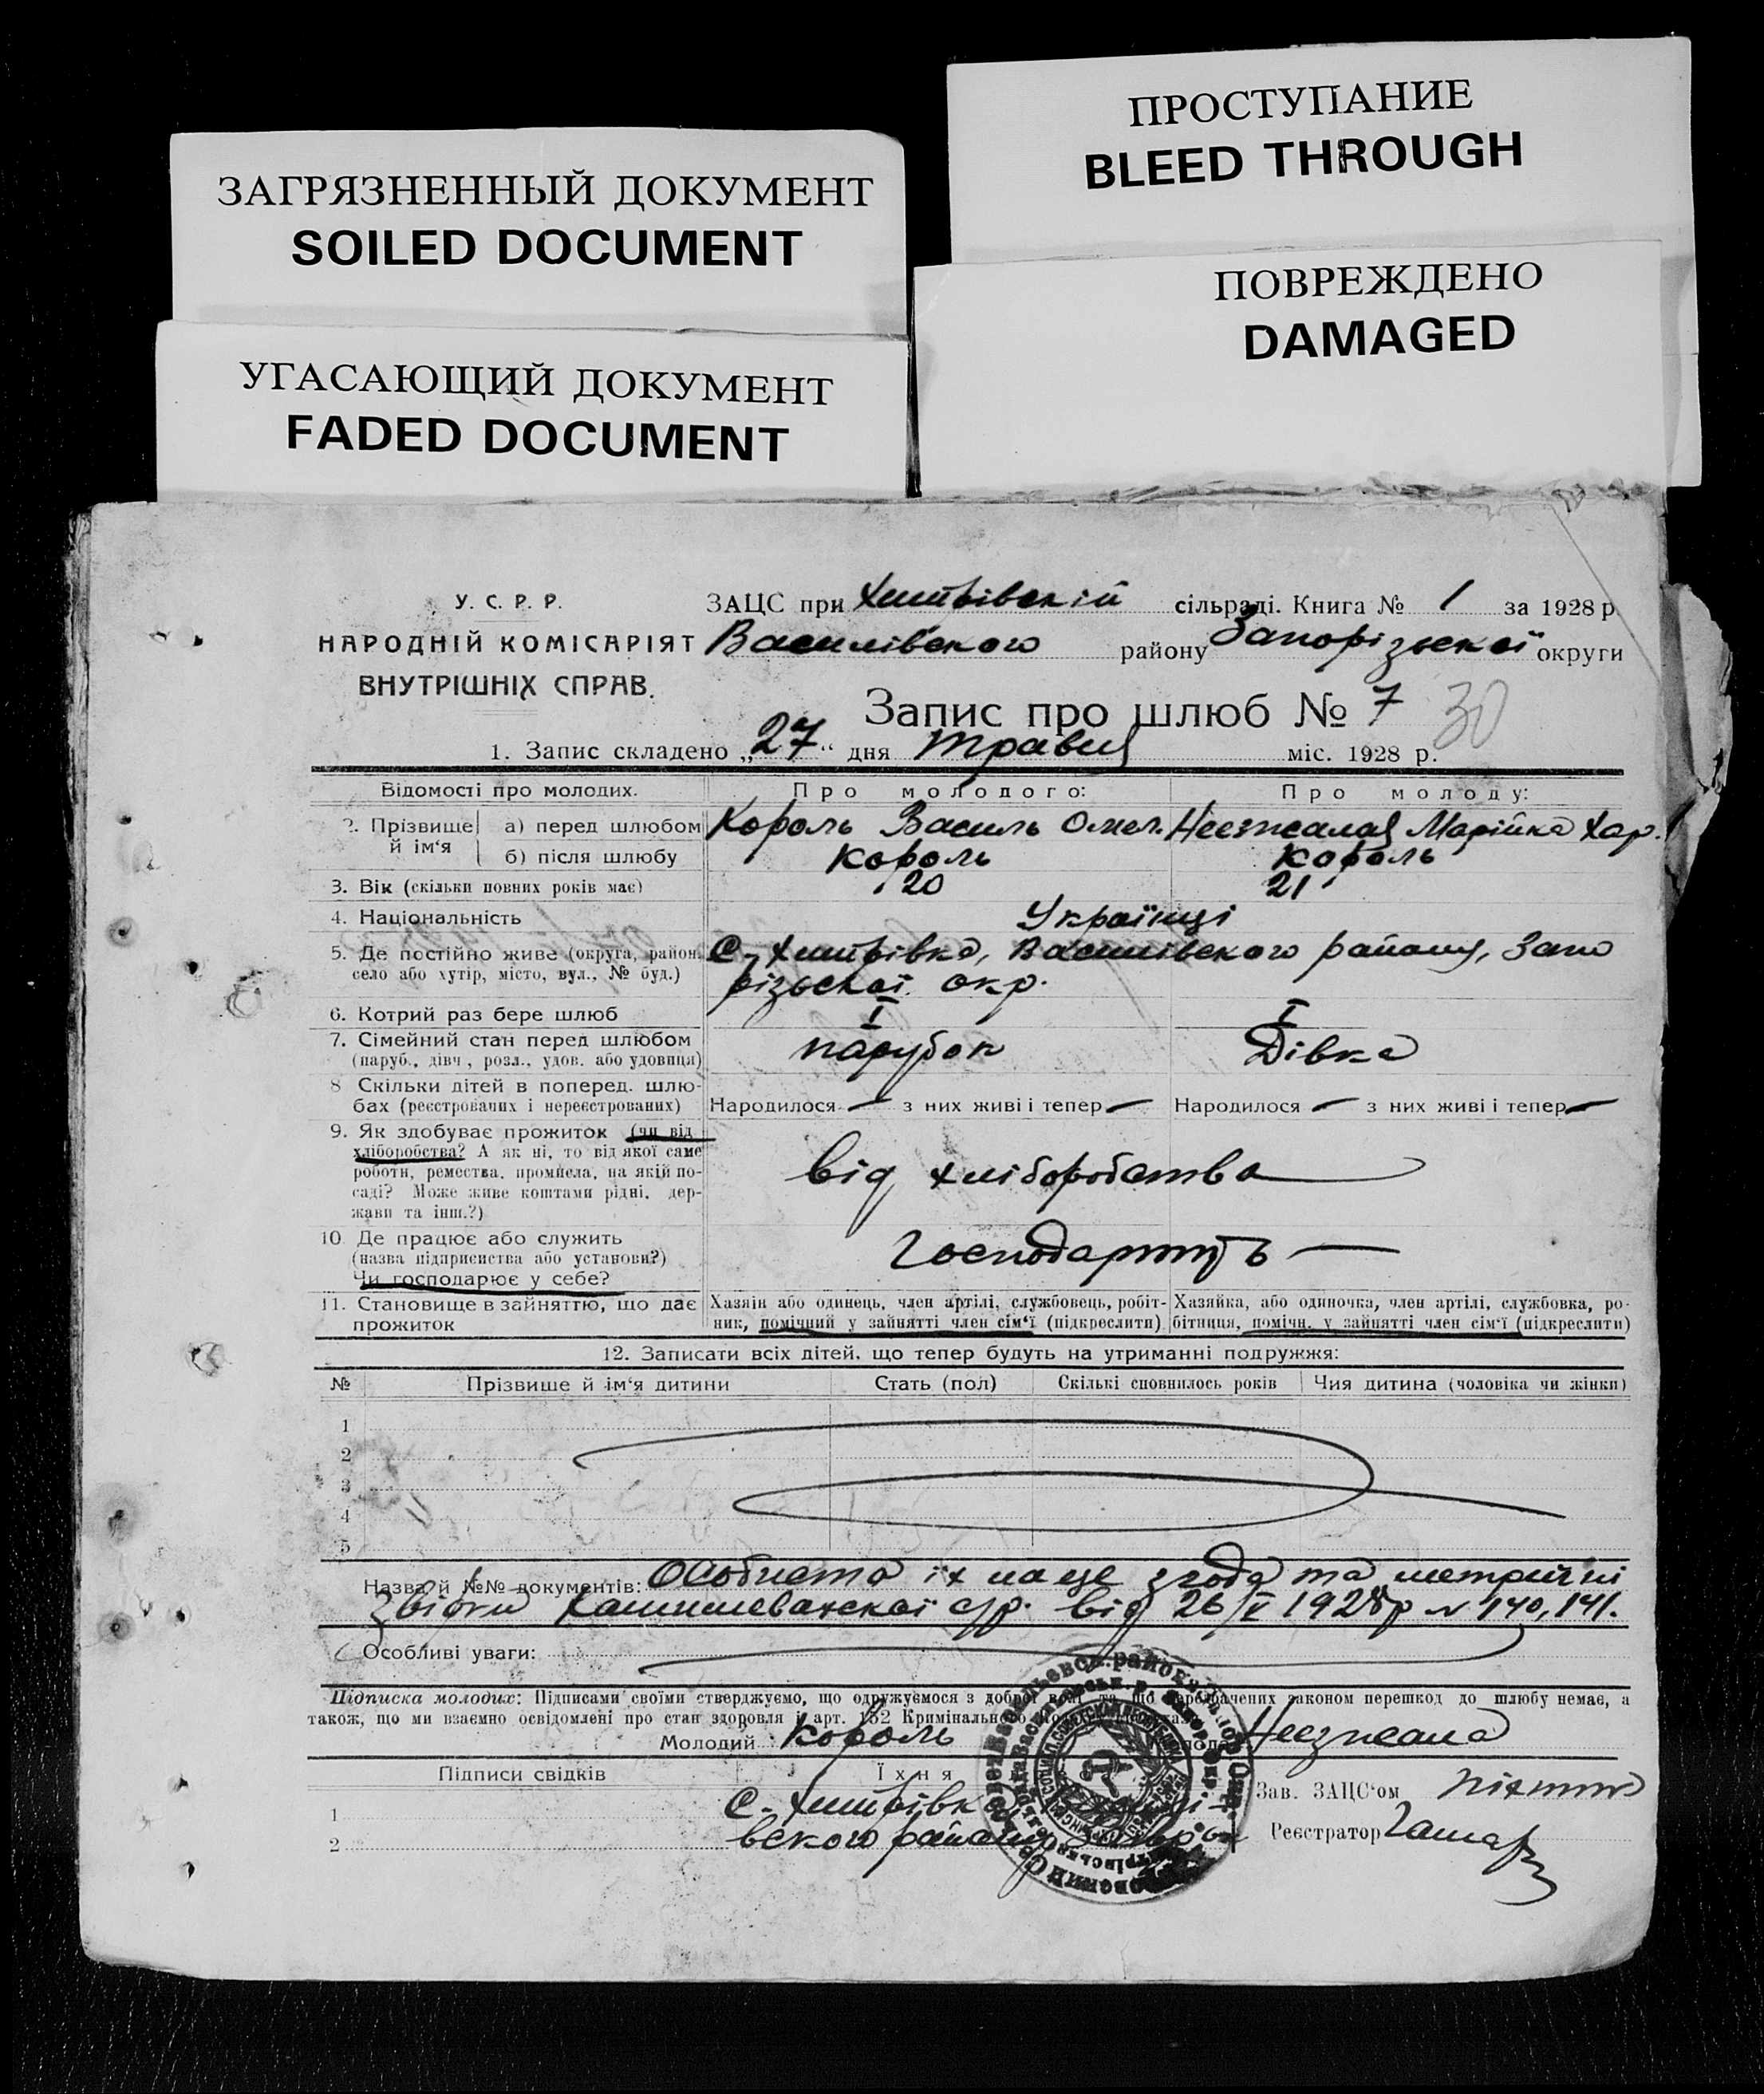 ПРОСТУПАНИЕ
BLEED THROUGH
ЗАГРЯЗНЕННЫЙ ДОКУМЕНТ
SOILED DOCUMENT
ПОВРЕЖДЕНО
DAMAGED
УГАСАЮЩИЙ ДОКУМЕНТ
FADED DOCUMENT
У. С. Р. Р.
НАРОДНІЙ КОМІСАРІЯТ
ВНУТРІШНІХ СПРАВ.
ЗАЦС при Хитрівській сільраді. Книга № 1 за 1928 р
Василівского району Запорізької округи
Запис про шлюб № 7 30
1. Запис складено „27“ дня травня міс. 1928 р.
Відомості про молодих. Про молодого: Про молоду:
2. Прізвище й ім‘я а) перед шлюбом Король Василь Омел. Неезжалая Марійка Хар.
б) після шлюбу Король Король
3. Вік (скільки повних років має) 20 21
4. Національність Українці
5. Де постійно живе (округа, район, село або хутір, місто, вул., № буд.) С. Хитрівка, Василівского району, Запо
різьскої окр.
6. Котрий раз бере шлюб I I
7. Сімейний стан перед шлюбом (паруб., дівч., розл., удов. або удовиця) парубок Дівка
8 Скільки дітей в поперед. шлюбах (реєстрованих і нереєстрованих) Народилося — з них живі і тепер — Народилося — з них живі і тепер —
9. Як здобуває прожиток (чи від
хліборобства? А як ні, то від якої саме
роботи, ремества, промисла, на якій по-
саді? Може живе коштами рідні, дер-
жави та інш.?)
від хліборобства
10. Де працює або служить
(назва підприєнства або установи?)
Чи господарює у себе?
Господарюють —
11. Становище в зайняттю, що дає прожиток
Хазяїн або одинець, член артілі, службовець, робіт-
ник, помічний у зайнятті член сім‘ї (підкреслити)
Хазяйка, або одиночка, член артілі, службовка, ро-
бітниця, помічн. у зайнятті член сім‘ї (підкреслити)
12. Записати всіх дітей, що тепер будуть на утриманні подружжя:
№ Прізвише й ім‘я дитини Стать (пол) Скількі сповнилось років Чия дитина (чоловіка чи жінки)
1
2
3
4
5
Назва й №№ документів: Особиста їх на це згода та метричні
звістки с/р. від 26/V 1928р № 140, 141.
Особливі уваги:
Підписка молодих: Підписами своїми стверджуємо, що одружуємося з доброї волі та що передбачених законом перешкод до шлюбу немає, а
також, що ми взаємно освідомлені про стан здоровля і арт. 152 Кримінального
Молодий Король Неезжала
Підписи свідків Їхня
Зав. ЗАЦС‘ом
1 С. Хитрівка
2 вского району
Реєстратор